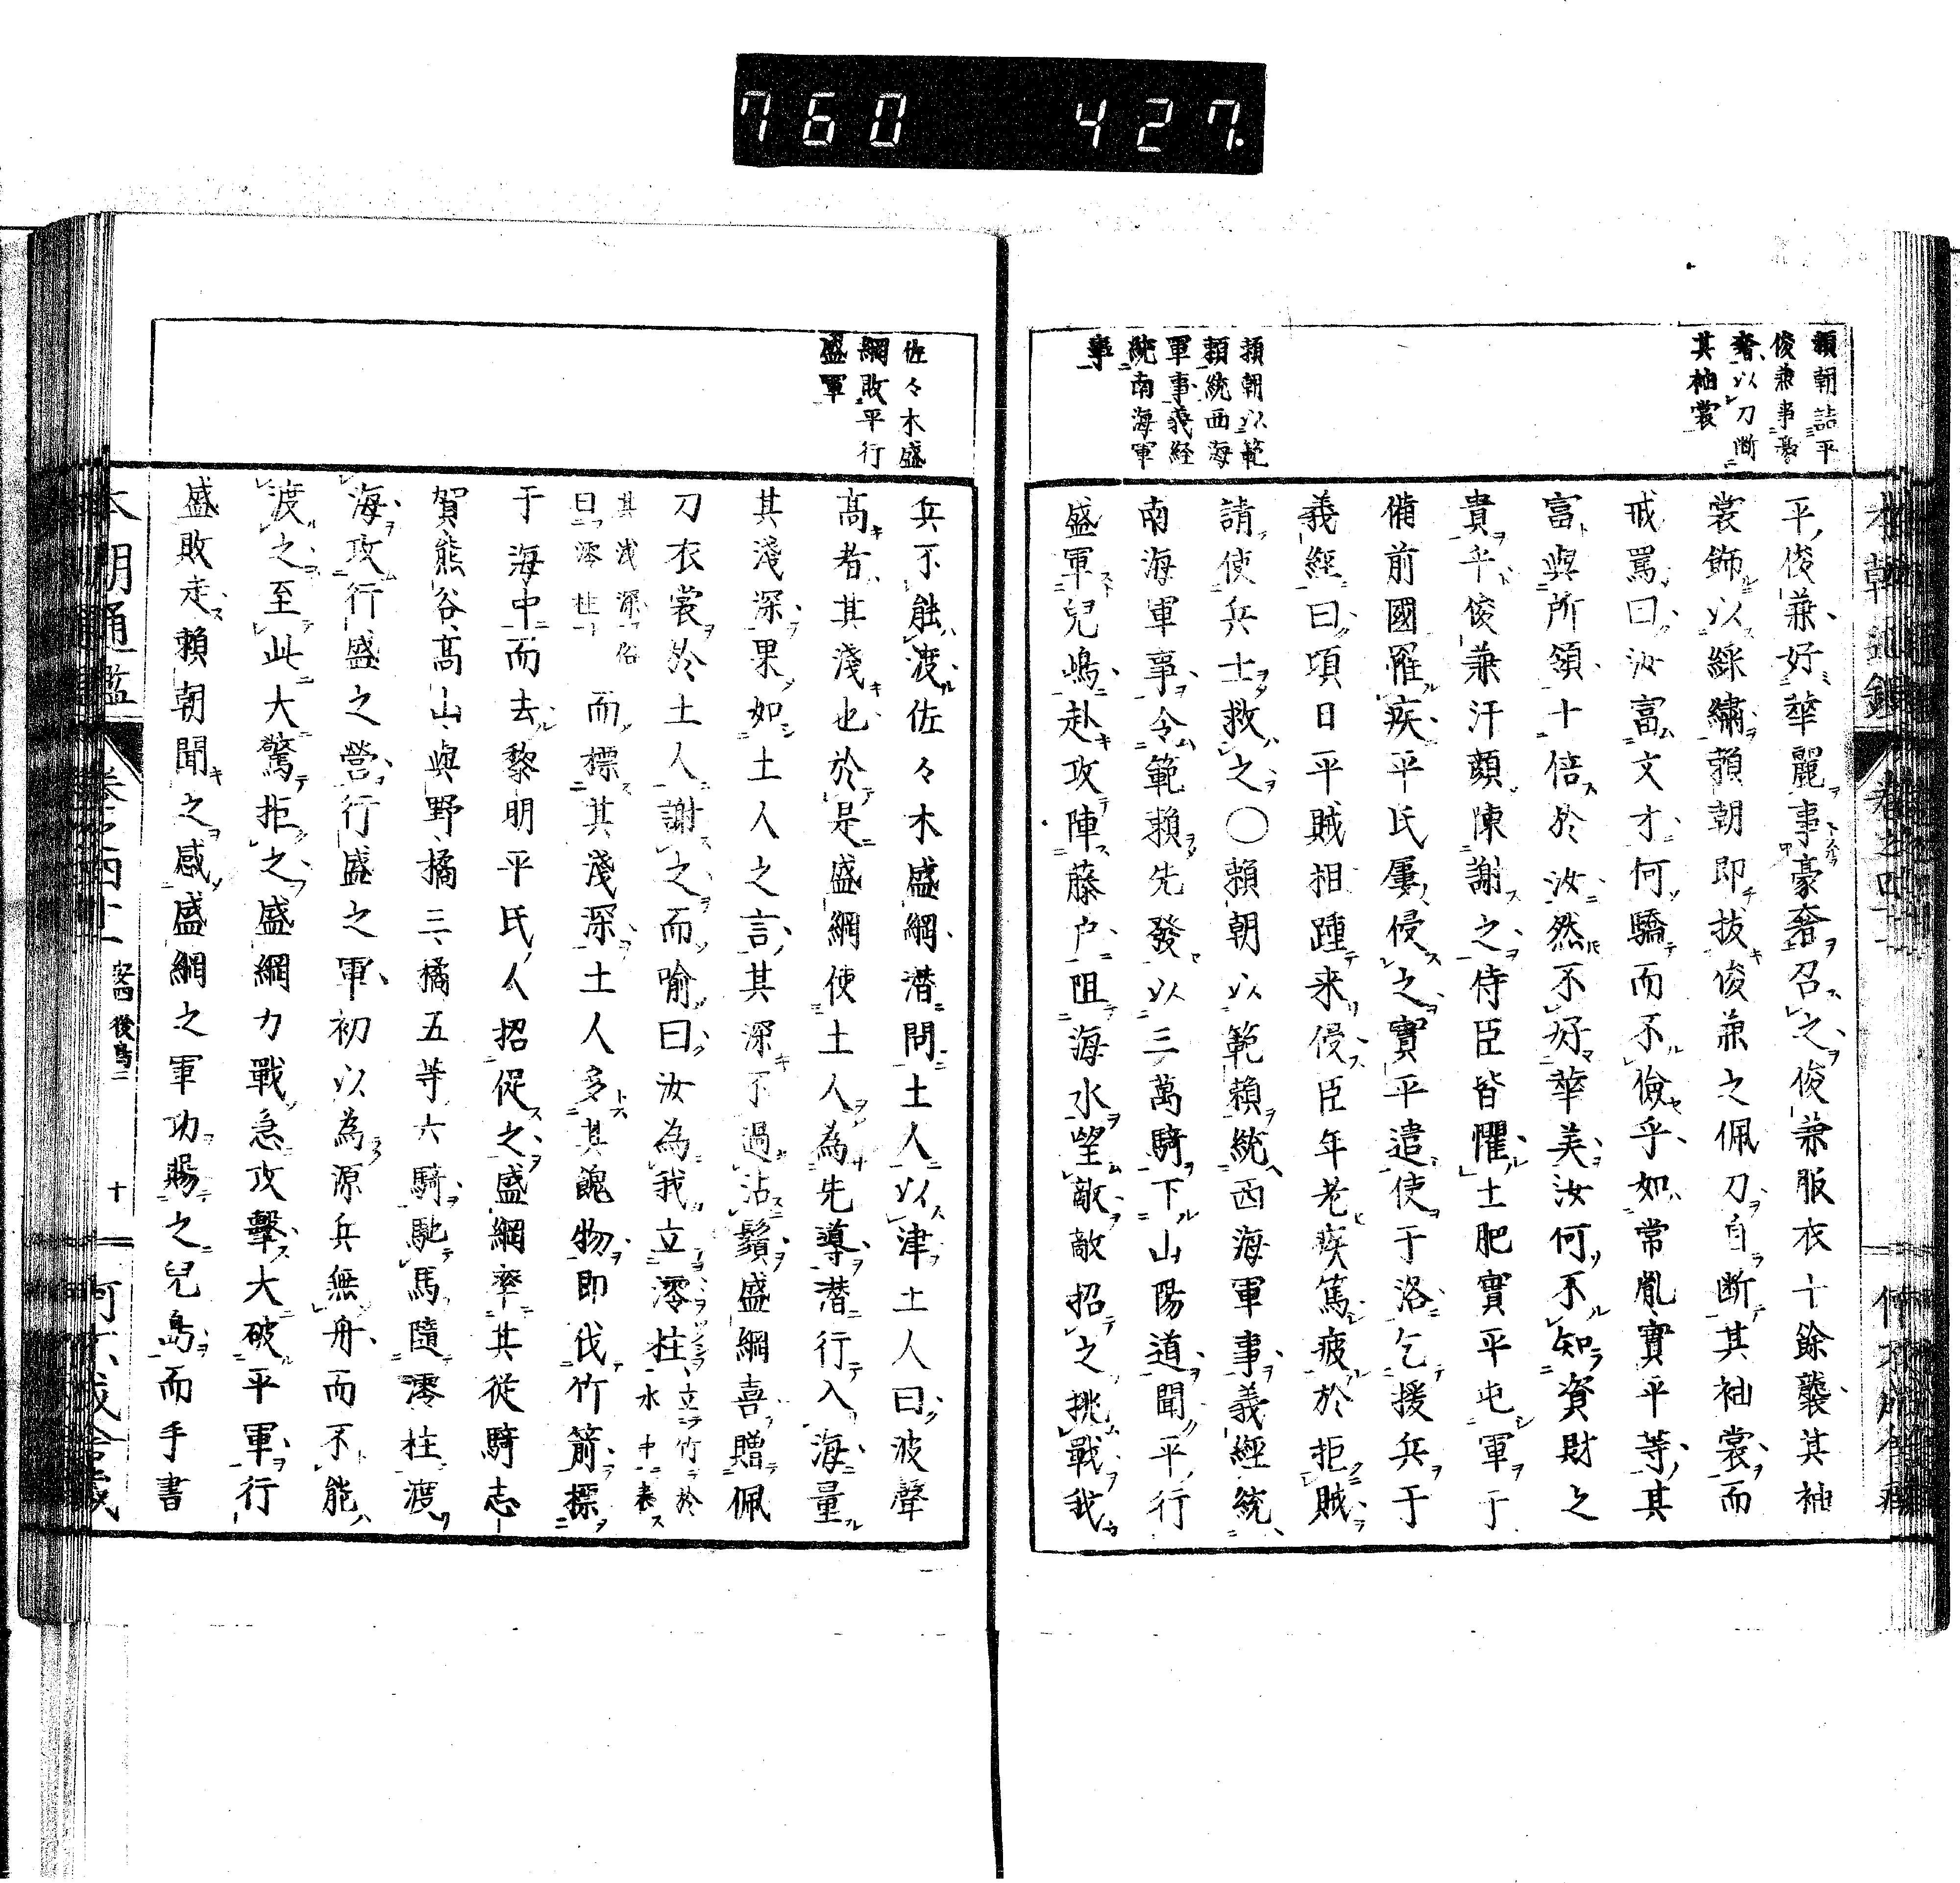 760 427.
賴朝詰平
俊兼事豪
奢以刀断
其袖裳
平俊兼好華麗事豪奢召之俊兼服衣十餘襲其袖
裳飾以綵繡賴朝即抜俊兼之佩刀自断其袖裳而
戒罵曰汝富文才何驕而不儉乎如常胤實平等其
富與所領十倍於汝然不好華美汝何不知資財之
貴乎俊兼汗顔陳謝之侍臣皆懼土肥實平屯軍于
備前國罹疾平氏屢侵之實平遣使于洛乞援兵于
義經曰項日平賊相踵来侵臣年老疾篤疲於拒賊
請使兵士救之〇賴朝以範賴統西海軍事義經統
南海軍事令範賴先發以三萬騎下山陽道聞平行
盛軍兒嶋赴攻陣藤户阻海水望敵敵招之挑戰我
賴朝以範
賴統西海
軍事義経
統南海軍
事
佐々木盛
綱敗平行
盛軍
兵不能渡佐々木盛綱潜問土人以津土人曰波聲
高者其淺也於是盛綱使土人為先導潜行入海量
其淺深果如土人之言其深不過沾鬚盛綱喜贈佩
刀衣裳於土人謝之而喻曰汝為我立澪柱立竹於水中表
其浅深俗曰澪柱而標其淺深土人多其餽物即伐竹箭標
于海中而去黎明平氏人招促之盛綱率其従騎志
賀熊谷高山與野橘三橘五等六騎馳馬隨澪柱渡
海攻行盛之營行盛之軍初以為源兵無舟而不能
渡之至此大驚拒之盛綱力戰急攻擊大破平軍行
盛敗走賴朝聞之感盛綱之軍功賜之兒島而手書
本朝通鑑 卷之四十 安四後鳥二 十